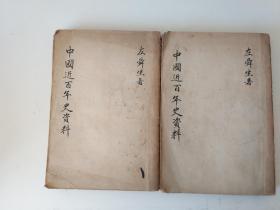 左舜生著
中國近百年史資料
左舜生著
中國近百年史資料